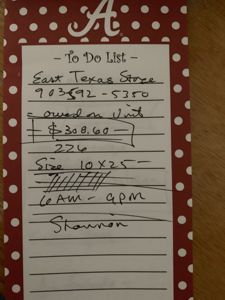 A
- To Do List -
East Texas Storage
903-592-5350
- owed on Units
- $308.60 -
226
Size 10x25 -
6AM - 9PM
Shannon